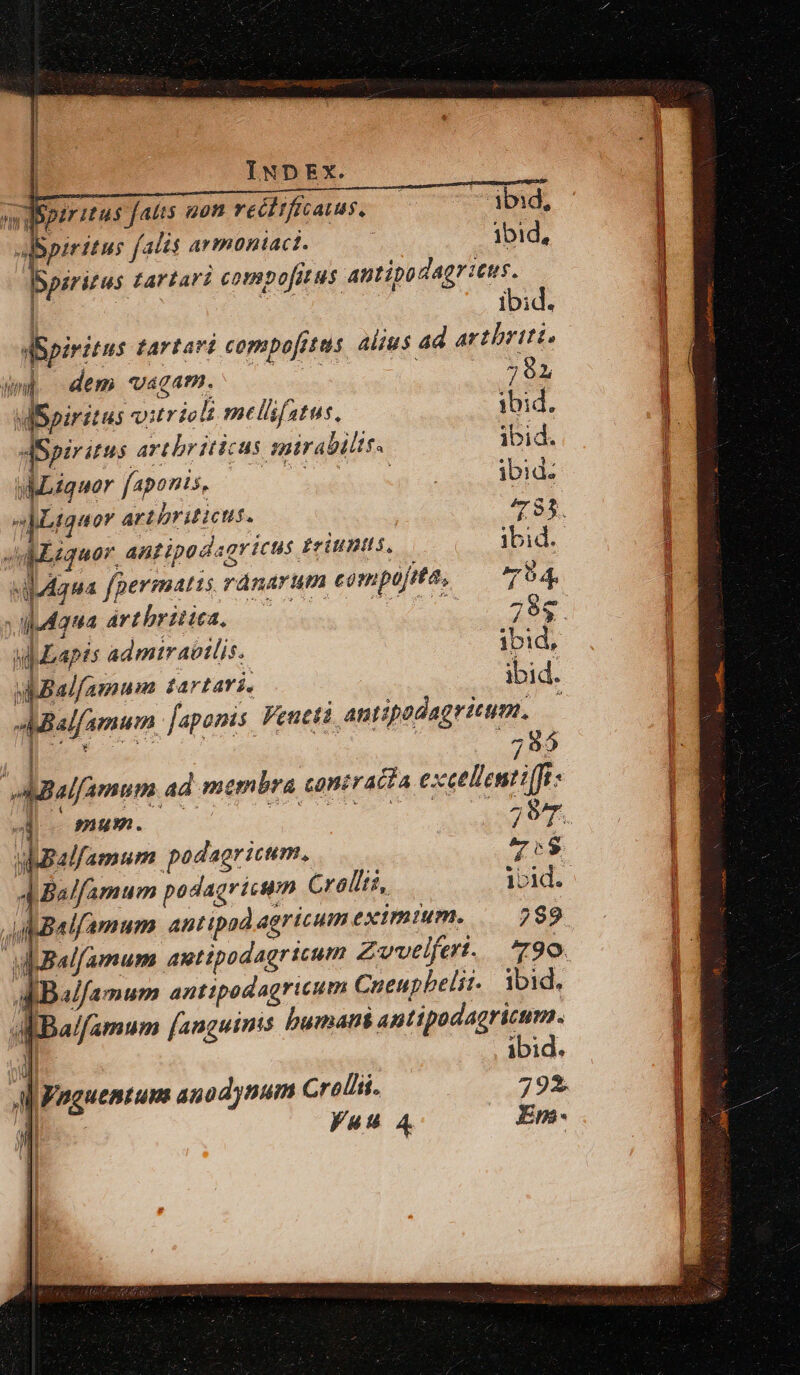 INDEX.
Spiritus ſalis non rectificatus. ibid.
Spiritus ſalis armoniaci. ibid.
Spiritus tartari compoſitus antipodagricus.
ibid.
Spiritus tartari compoſitus alius ad arthriti-
dem vagam. 782
Spiritus vitrioli melliſatus. ibid.
Spiritus arthriticus mirabilis. ibid.
Liquor ſaponis. ibid.
Liquor arthriticus. 783
Liquor antipodagricus triunus. ibid.
Aqua ſpermatis ranarum compoſita. 784
Aqua arthritica. 785
Lapis admirabilis. ibid.
Balſamum tartari. ibid.
Balſamum ſaponis Veneti antipodagricum.
786
Balſamum ad membra contracta excellentiſſi-
mum. 787
Balſamum podagricum. 788
Balſamum podagricum Crollii. ibid.
Balſamum antipodagricum eximium. 789
Balſamum antipodagricum Zvvelferi. 790
Balſamum antipodagricum Cneuphelii. ibid.
Balſamum ſanguinis humani antipodagricum.
ibid.
Vnguentum anodynum Crollii. 792
Vuu 4 Em-